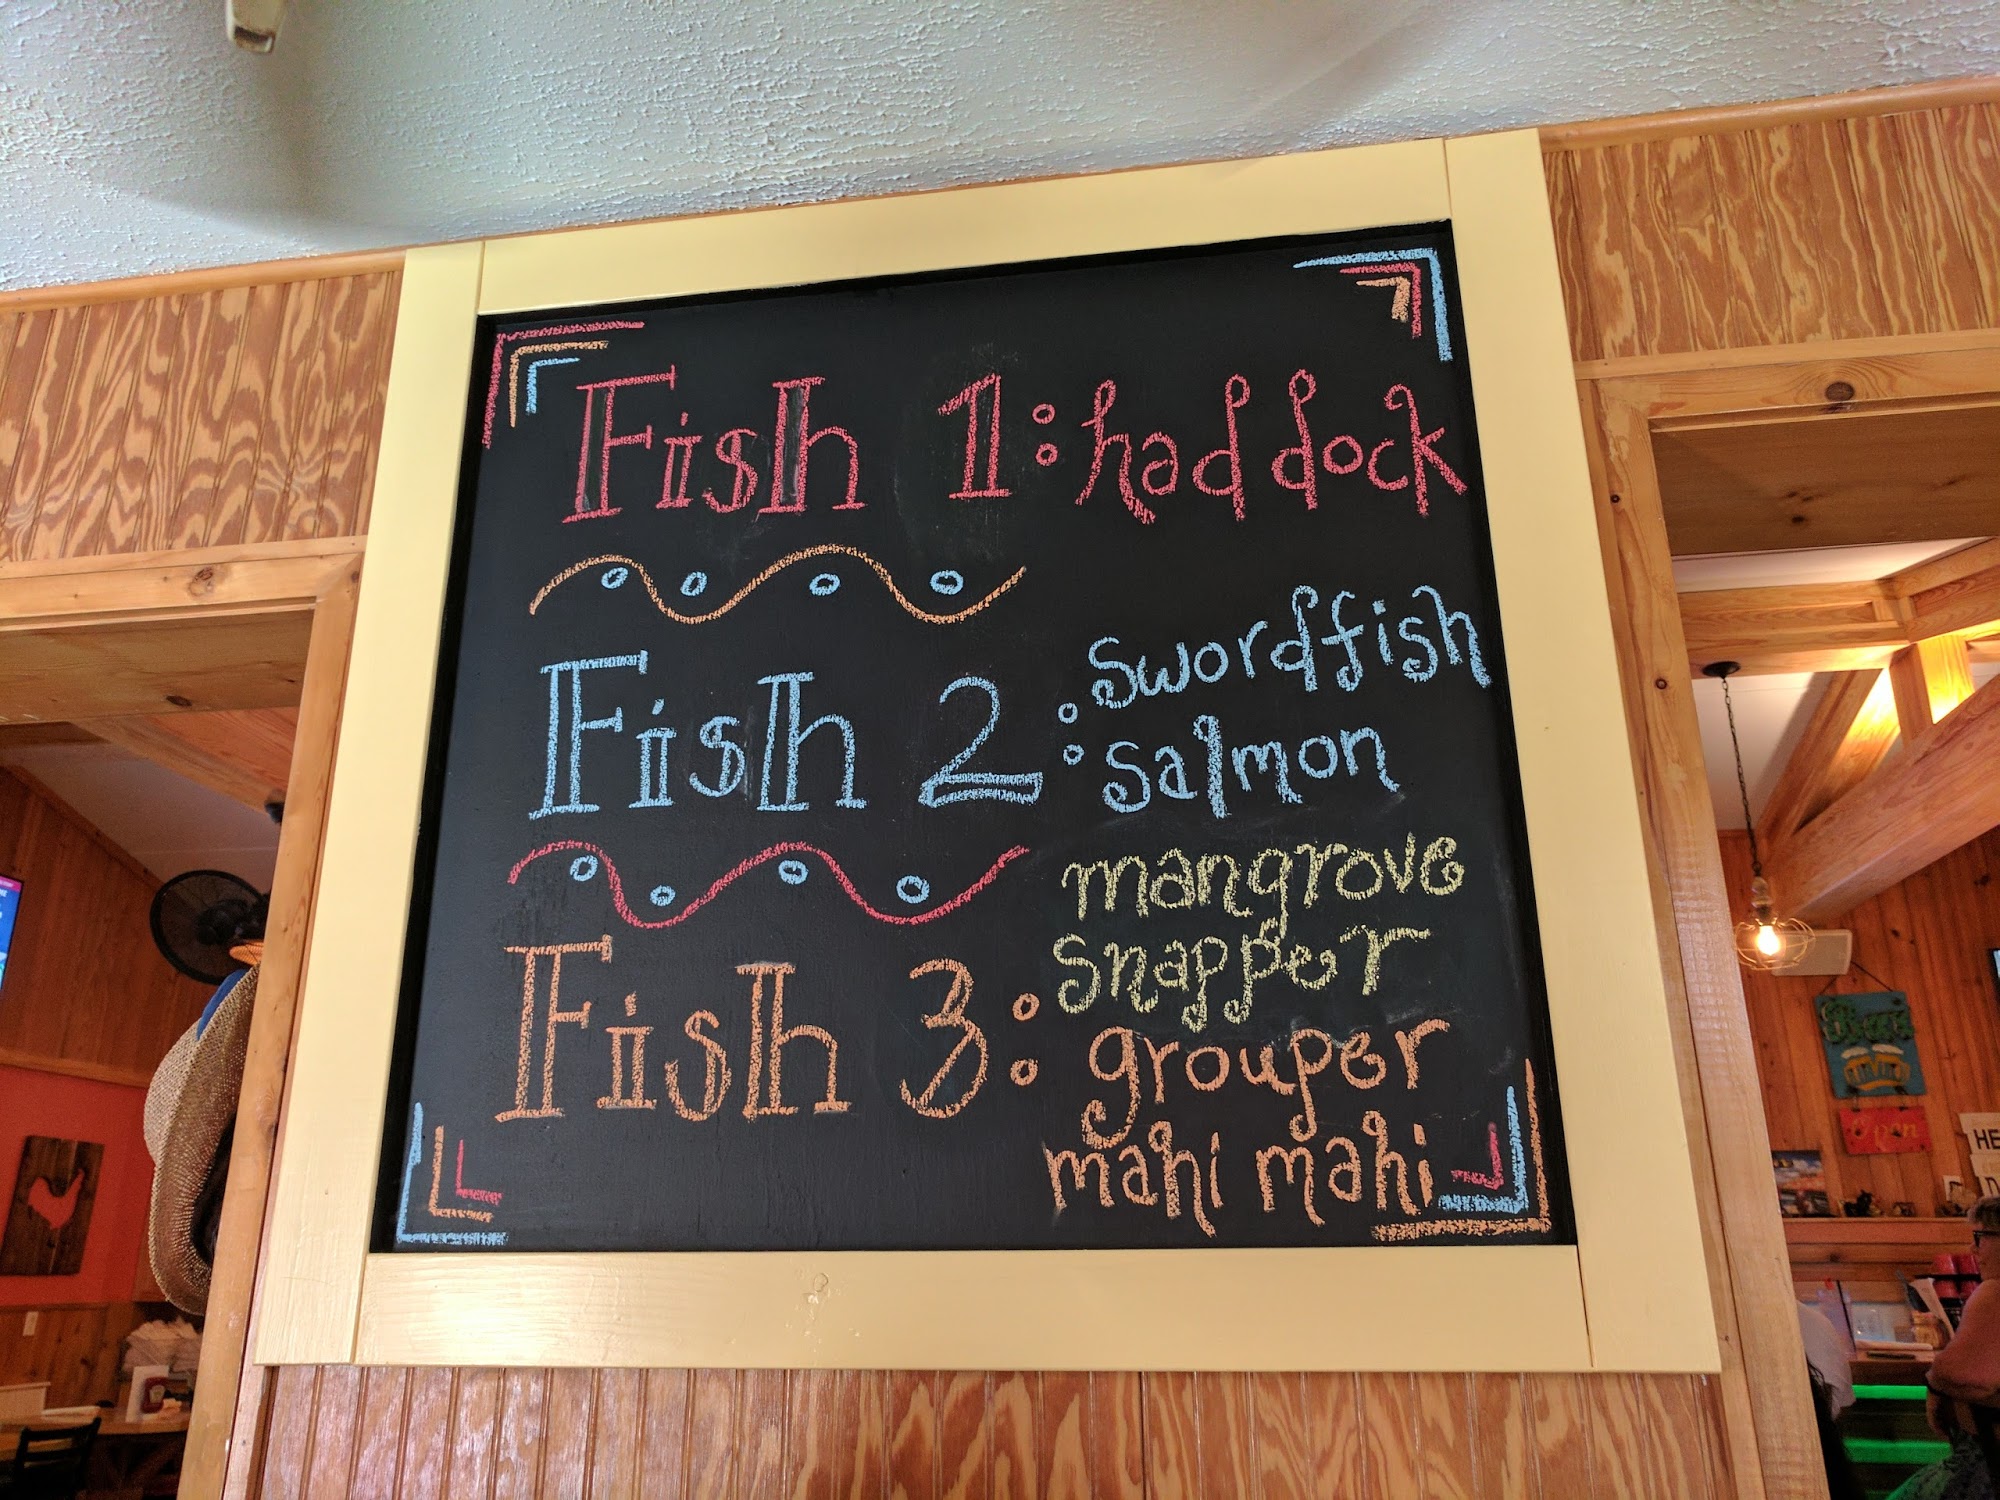 Fish 1: haddock
Fish 2: Swordfish
Salmon
mangrove
snapper
Fish 3: grouper
mahi mahi
Open
HE